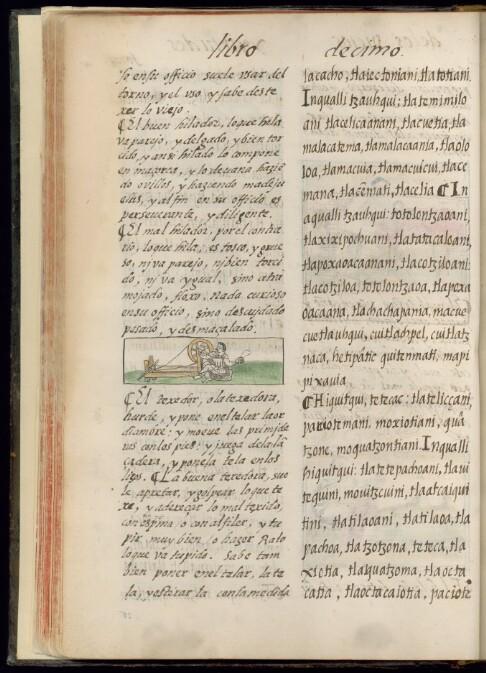 libro decimo.
so ensu officio suele usar del
torno, y el uso y sabe deste
xer lo viejo.
¶El buen hilador, lo que hila
va parejo, y delgado, y bien tor
cido, y ansi hilado lo compone
en maçorca, y lo devana hazie
do ovillos, y haziendo madejue
elas, y alfin en su officio es
perseverante, y diligente.
¶El mal hilador, por el contra
rio, lo que hila, es tosco, y grue
so, ni va parejo, ni bien torci
do, ni va ygual, sino atra
mojado, floxo. Nada curioso
en su officio, sino descuydado
pesado, y desmaçalado.
¶El texedor, o la texedora,
hurde, y pone enel telar la or
diambre: y mueve las primide
ras con los pies: y juega de la lã
çadera, y pone la tela en los
liços. ¶La buena texedora, sue
le apretar, y golpear lo que te
xe, y adereçar lo mal texido,
con espina o con alfiler, y tu
pir muy bien o hazer Ralo
lo que va tupido. Sabe tam
bien poner enel telar, la te
la, y estirar la con la medida
lacacho, tlaiectoniani, tlatotiani.
Inqualli tzauhqui: tlatemimilo
ani, tlacelicaanani, tlacuetia, tla
malacatema, tlamalacaania, tlaolo
loa, tlamacuia, tlamacuicui, tlace
mana, tlacemati, tlacelia ¶In
aqualli tzauhqui: totolontzaoani,
tlaxixipochuani, tlatatacaloani,
tlapoxaoacaanani, tlacotziloani:
tlacotziloa, totolontzaoa, tlapoxa
oacaana, tlachachapania, macue
cuetlauhqui, cuitlachpel, cuitlatz
naca, hetipatic quitenmati, mapi
pixauia
¶Hiquitqui, tetecac: tlateliccani,
paciotemani. moxiotiani, quã
tzone, moquatzontiani. Inqualli
hiquitqui: tlatetepachoani, tlaui
tequini, mouitzcuini, tlaatcaiqui
tini, tlatilaoani, tlatilaoa, tla
pachoa, tlatzotzona, teteca, tla
xiotia, tlaquatzoma, tlaocta
catia, tlaoctacaiotia, paciote